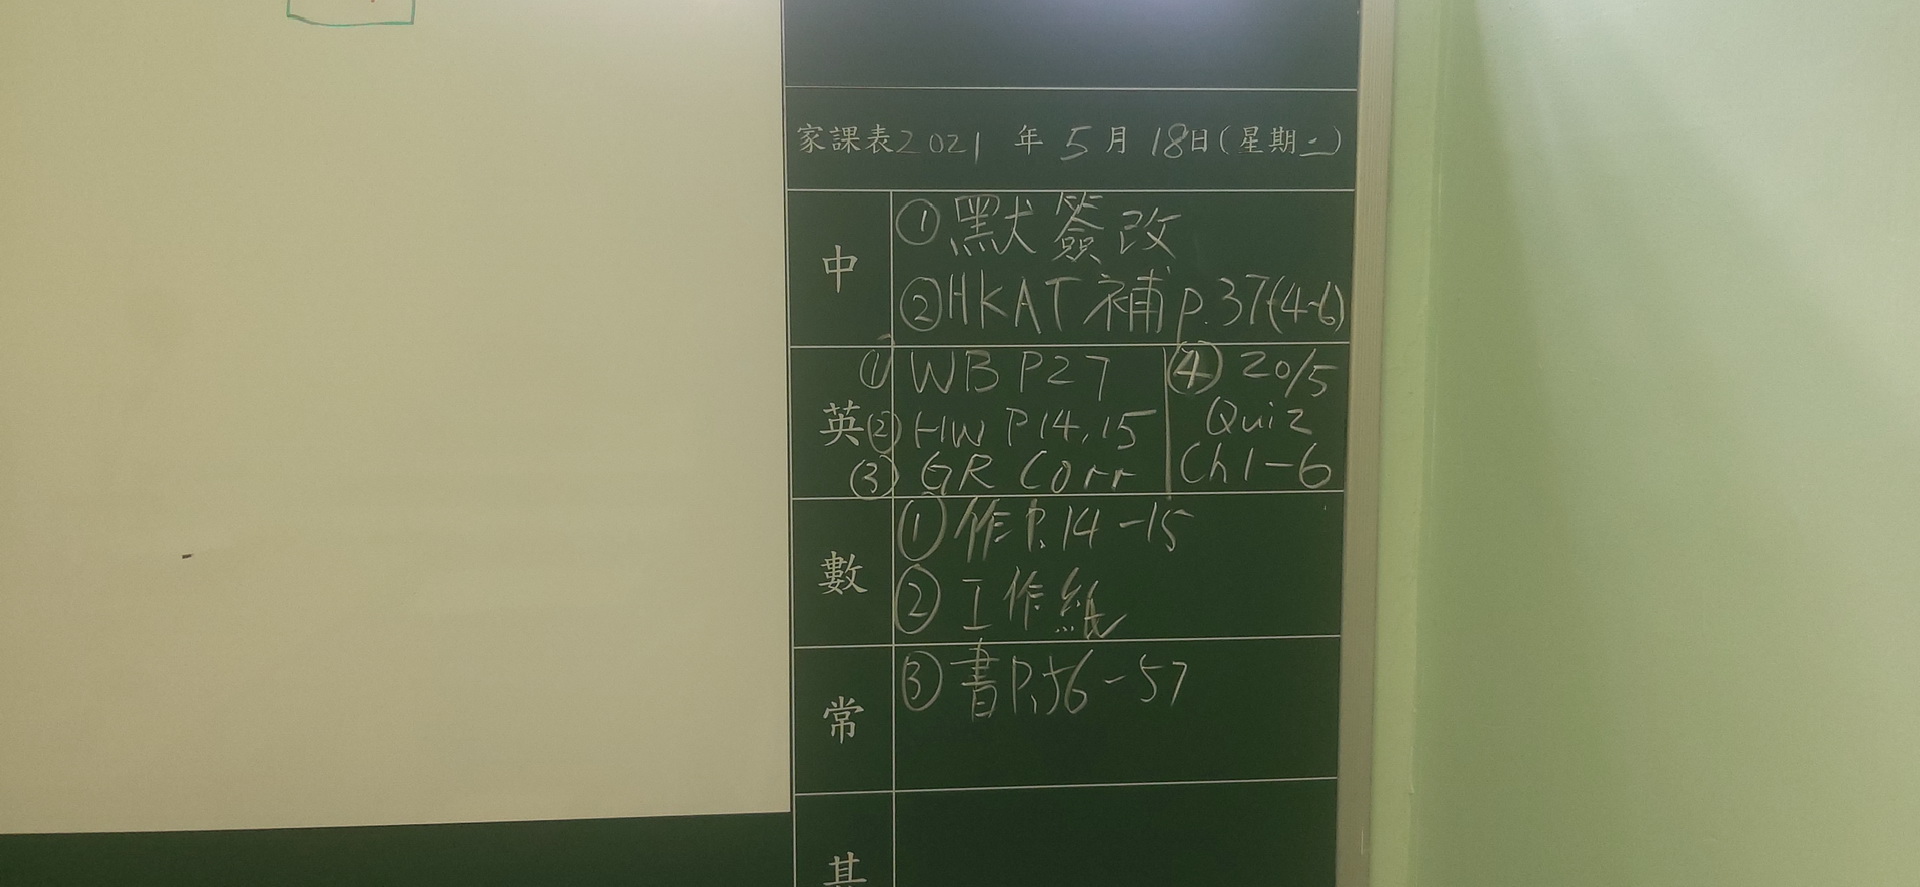 家課表2021年5月18日(星期二)
中
①默簽改
②HKAT補 p.37(4-6)
英
① WB P27
② HW P14,15
③ GR Corr
④ 20/5
Quiz
Ch1-6
數
①作P.14-15
②工作紙
常
③書P.56-57